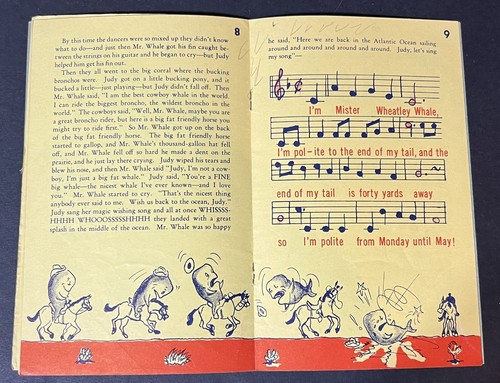 8
By this time the dancers were so mixed up they didn't know
what to do—and just then Mr. Whale got his fin caught be-
tween the strings on his guitar and he began to cry—but Judy
helped him get his fin out.
Then they all went to the big corral where the bucking
broncos were. Judy got on a little bucking pony, and it
bucked a little—just playing—but Judy didn't fall off. Then
Mr. Whale said, "I am the best cowboy whale in the world.
I can ride the biggest broncho, the wildest broncho in the
world." The cowboys said, "Well, Mr. Whale, maybe you are
a great broncho rider, but here is a big fat friendly horse you
might try to ride first." So Mr. Whale got up on the back
of the big fat friendly horse. The big fat friendly horse
started to gallop, and Mr. Whale's thousand-gallon hat fell
off, and Mr. Whale fell off so hard he made a dent on the
prairie, and he just lay there crying. Judy wiped his tears and
blew his nose, and then Mr. Whale said "Judy, I'm not a cow-
boy, I'm just a big fat whale." Judy said, "You're a FINE
big whale—the nicest whale I've ever known—and I love
you." Mr. Whale started to cry. "That's the nicest thing
anybody ever said to me. Wish us back to the ocean, Judy."
Judy sang her magic wishing song and all at once WHISSSS-
HHHH WHOOOSSSSHHHH they landed with a great
splash in the middle of the ocean. Mr. Whale was so happy
9
he said, "Here we are back in the Atlantic Ocean sailing
around and around and around and around. Judy, let's sing
my song"—
I'm Mister Wheatley Whale,
I'm pol-ite to the end of my tail, and the
end of my tail is forty yards away
so I'm polite from Monday until May!